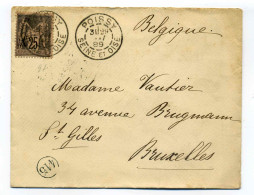 POISSY
89
SEINE ET OISE
25
Belgique
Madame Vautier
34 avenue Brugmann
St Gilles
Bruxelles